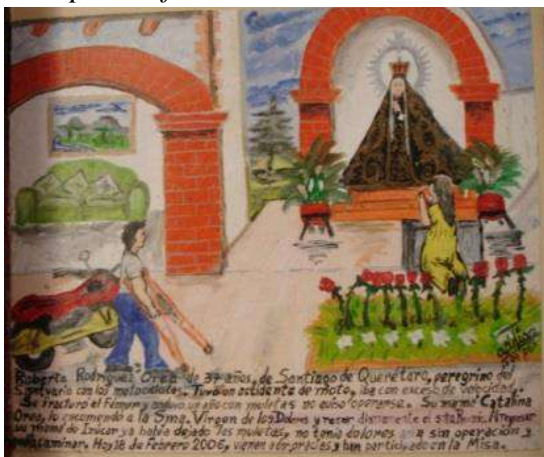 Roberto Rodriguez Orea de 37 años, de Santiago de Querétaro, peregrino del
Santuario con los motociclistas. Tuvo un accidente de moto, iba con exceso de velocidad,
se fracturo el Fémur y anduvo un año con muletas no quiso operarse. Su mamá Catalina
Orea, lo encomendo a la Sma. Virgen de los Dolores y rezar diariamente el sto. Rosario. Al regresar
su mamá de Izúcar ya había dejado las muletas, no tenía dolores sin operación y
a caminar. Hoy 18 de Febrero 2006, vienen a dar gracias y han participado en la Misa.